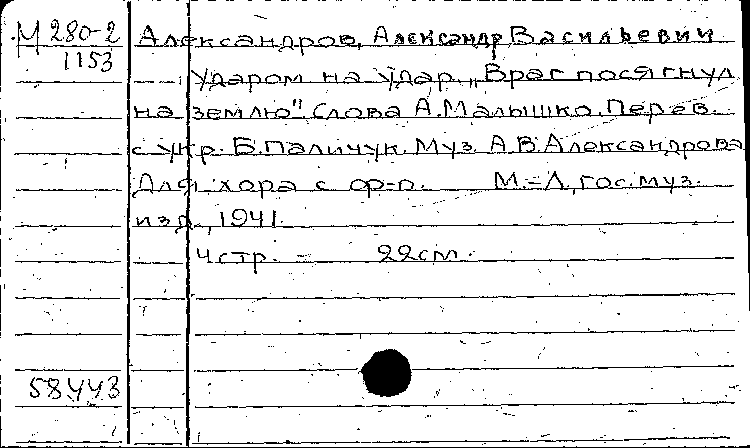 М 280-2
1153
Александров, Александр Васильевич
Ударом на удар. „Враг посягнул
на землю". Слова А. Малышко. Перев.
с укр. Б. Паличук. Муз. А.В. Александрова
Для хора с ф-п. М.-Л, гос. муз.
изд., 1941.
4 стр. - 22 см.
58443